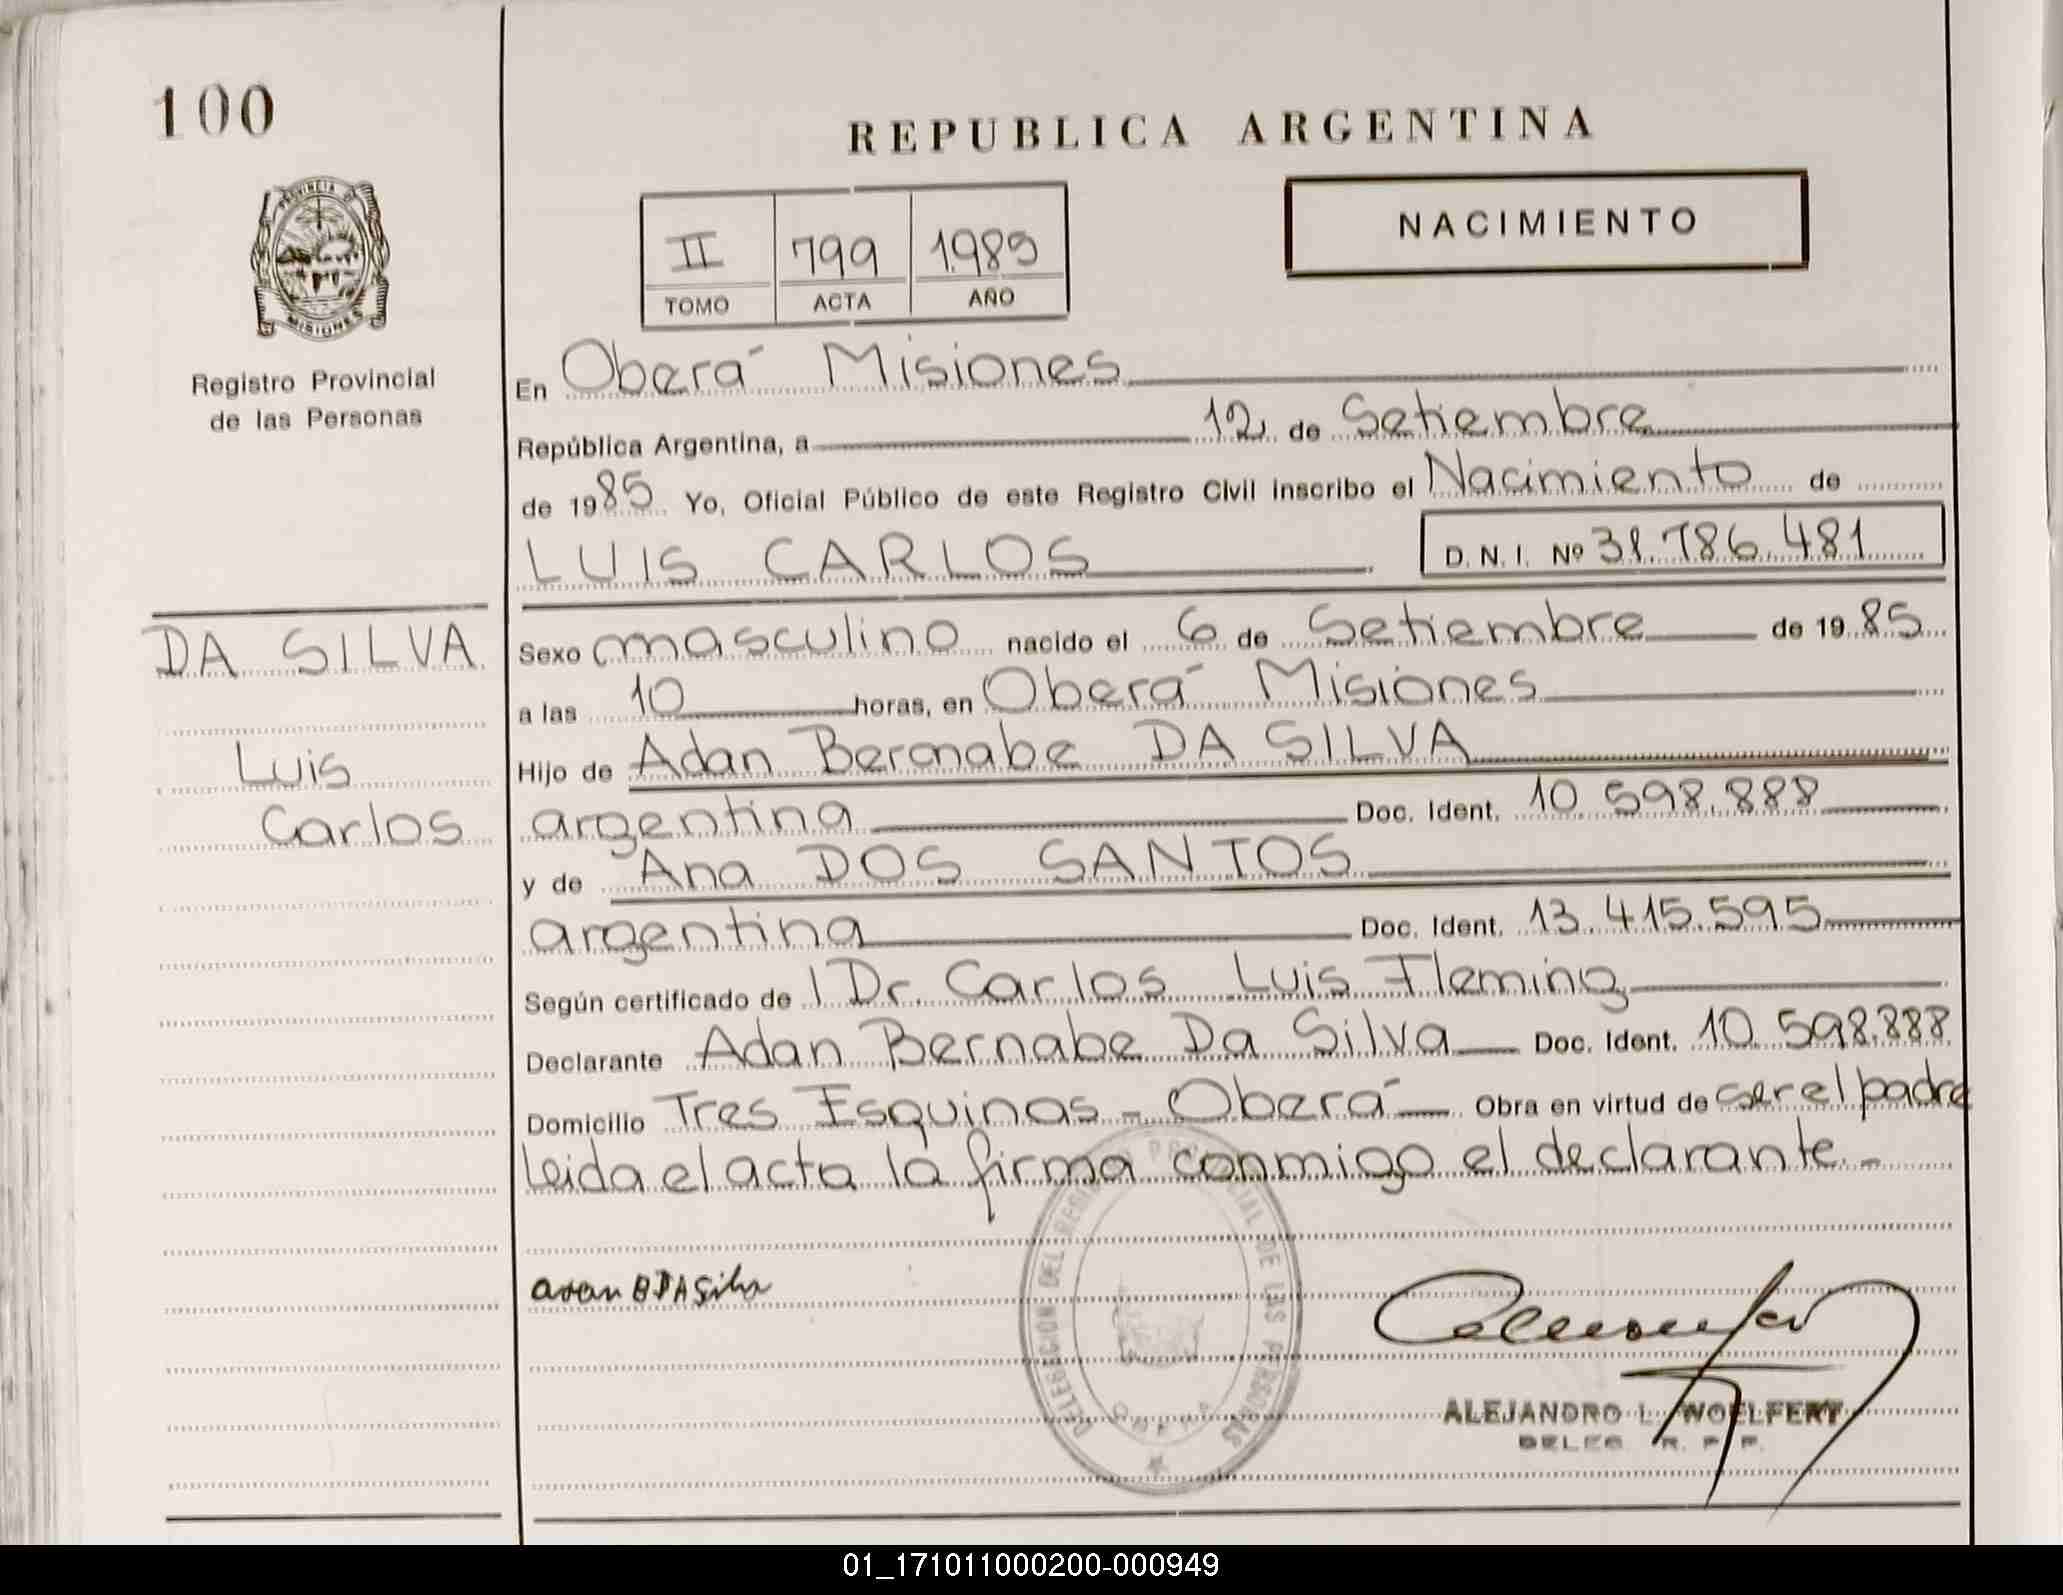 100
REPUBLICA ARGENTINA
PROVINCIA DE
MISIONES
Registro Provincial
de las Personas
NACIMIENTO
II 799 1985
TOMO ACTA AÑO
En Oberá Misiones
República Argentina, a 12 de Setiembre
de 1985 Yo, Oficial Público de este Registro Civil inscribo el Nacimiento de
LUIS CARLOS D. N. I. Nº 31.786.481
DA SILVA
Luis
Carlos
Sexo masculino nacido el 6 de Setiembre de 1985
a las 10 horas, en Oberá Misiones
Hijo de Adan Bernabe DA SILVA
argentina Doc. Ident. 10.598.888
y de Ana DOS SANTOS
argentina Doc. Ident. 13.415.595
Según certificado de Dr. Carlos Luis Fleming
Declarante Adan Bernabe Da Silva Doc. Ident. 10.598.888
Domicilio Tres Esquinas - Oberá Obra en virtud de ser el padre
Leida el acta la firma conmigo el declarante.-
DELEGACION DEL REGISTRO PROVINCIAL DE LAS PERSONAS
OBERA
ALEJANDRO L. WOELFERT
DELEG. R. P. P.
01_171011000200-000949